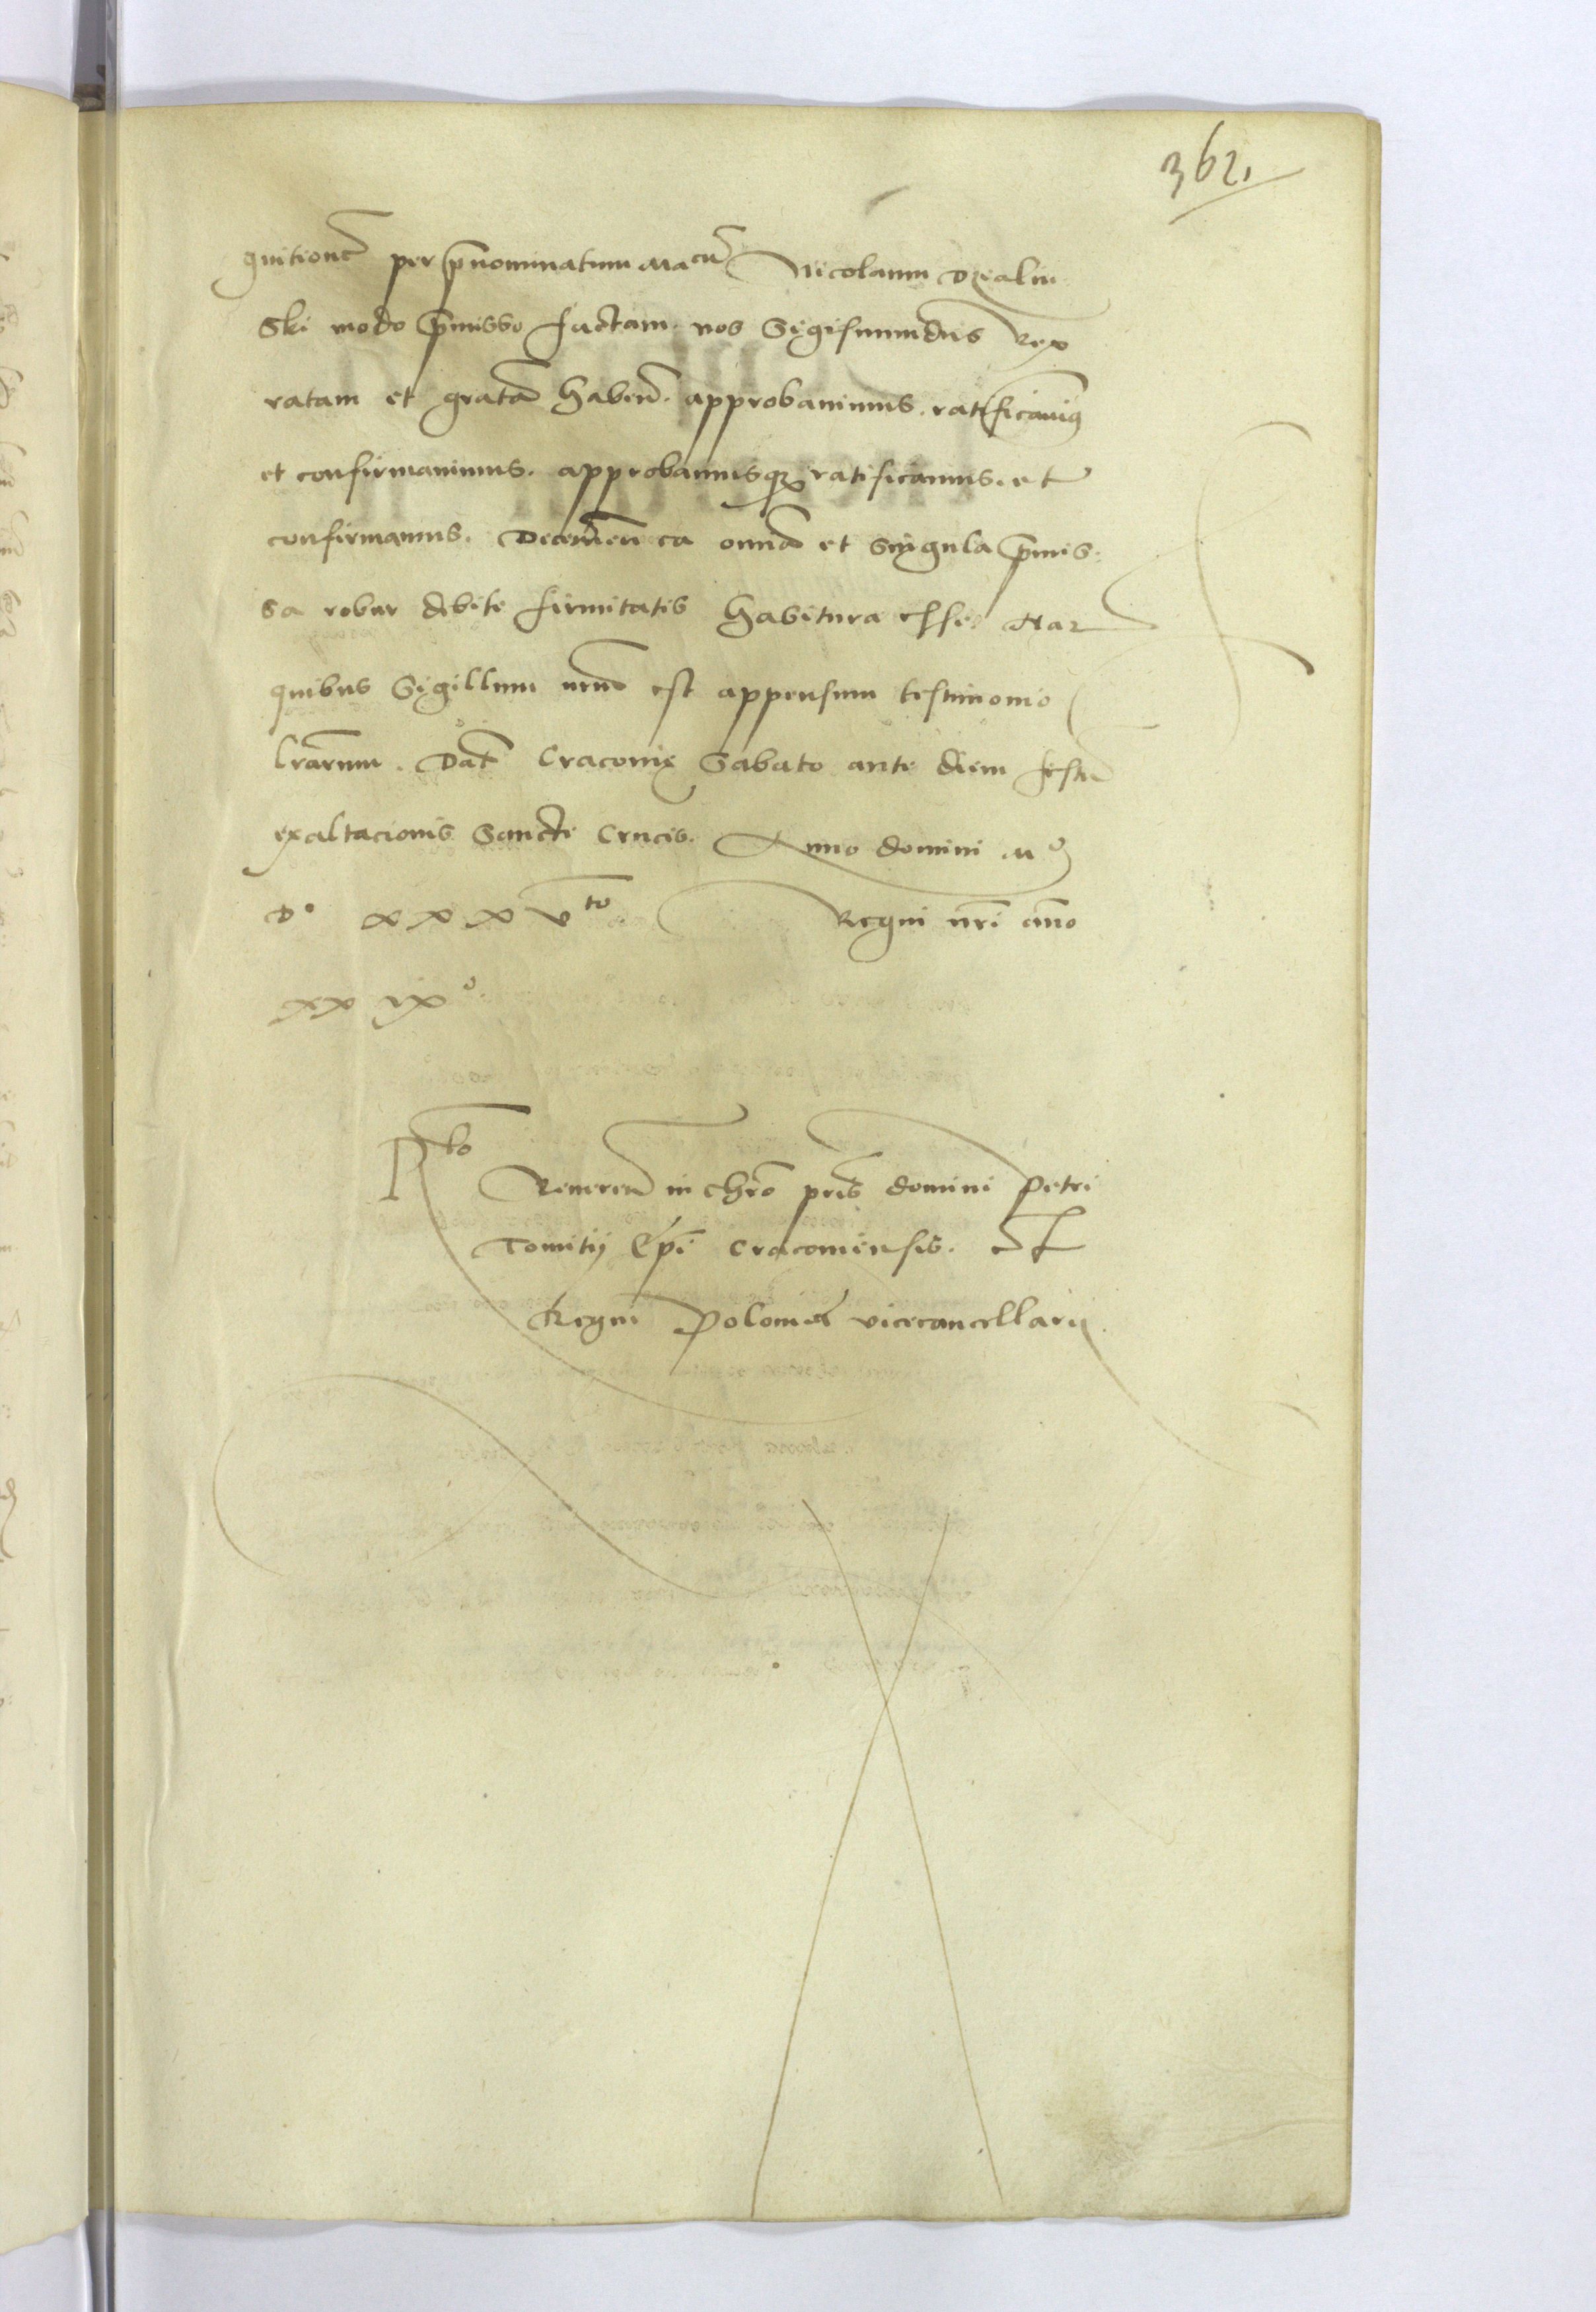 362.
gnitionẽ per p̃nominatum Macũ Nicolaum Dzialin
Ski modo p̃misso factam. nos Sigismundus Rex
ratam et gratã habeñ. approbauimus. ratificauimꝰ
et confirmauimus. approbamusqꝫ ratificamus. et
confirmamus. Decerneñ ea omnia et Singula p̃mis:
sa robur debite firmitatis habitura esse. Har
quibus Sigillum nrũ est appensum testimonio
lrarum. Dat̃ Cracouie Sabato ante diem festũ
exaltacionis Sancte Crucis. Anno domini Mᵒ
Dᵒ xxx vᵗᵒ Regni nr̃i anno
xx ixᵒ.
Rᵗᵒ Reueren̄ in chr̃o pr̃is domini Petri
Tomitij Ep̃i Cracouiensis. et
Regni Polonie vicecancellarij.